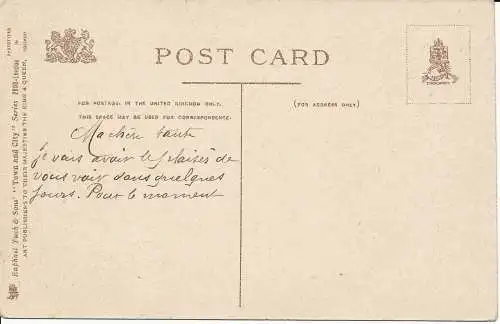 POST CARD
FOR POSTAGE, IN THE UNITED KINGDOM ONLY,
THIS SPACE MAY BE USED FOR CORRESPONDENCE.
(FOR ADDRESS ONLY)
Ma chère tante
je vais avoir le plaisir de
vous voir dans quelques
jours. Pour le moment
Raphael Tuck & Sons' "Town and City" Series
ART PUBLISHERS TO THEIR MAJESTIES THE KING & QUEEN.